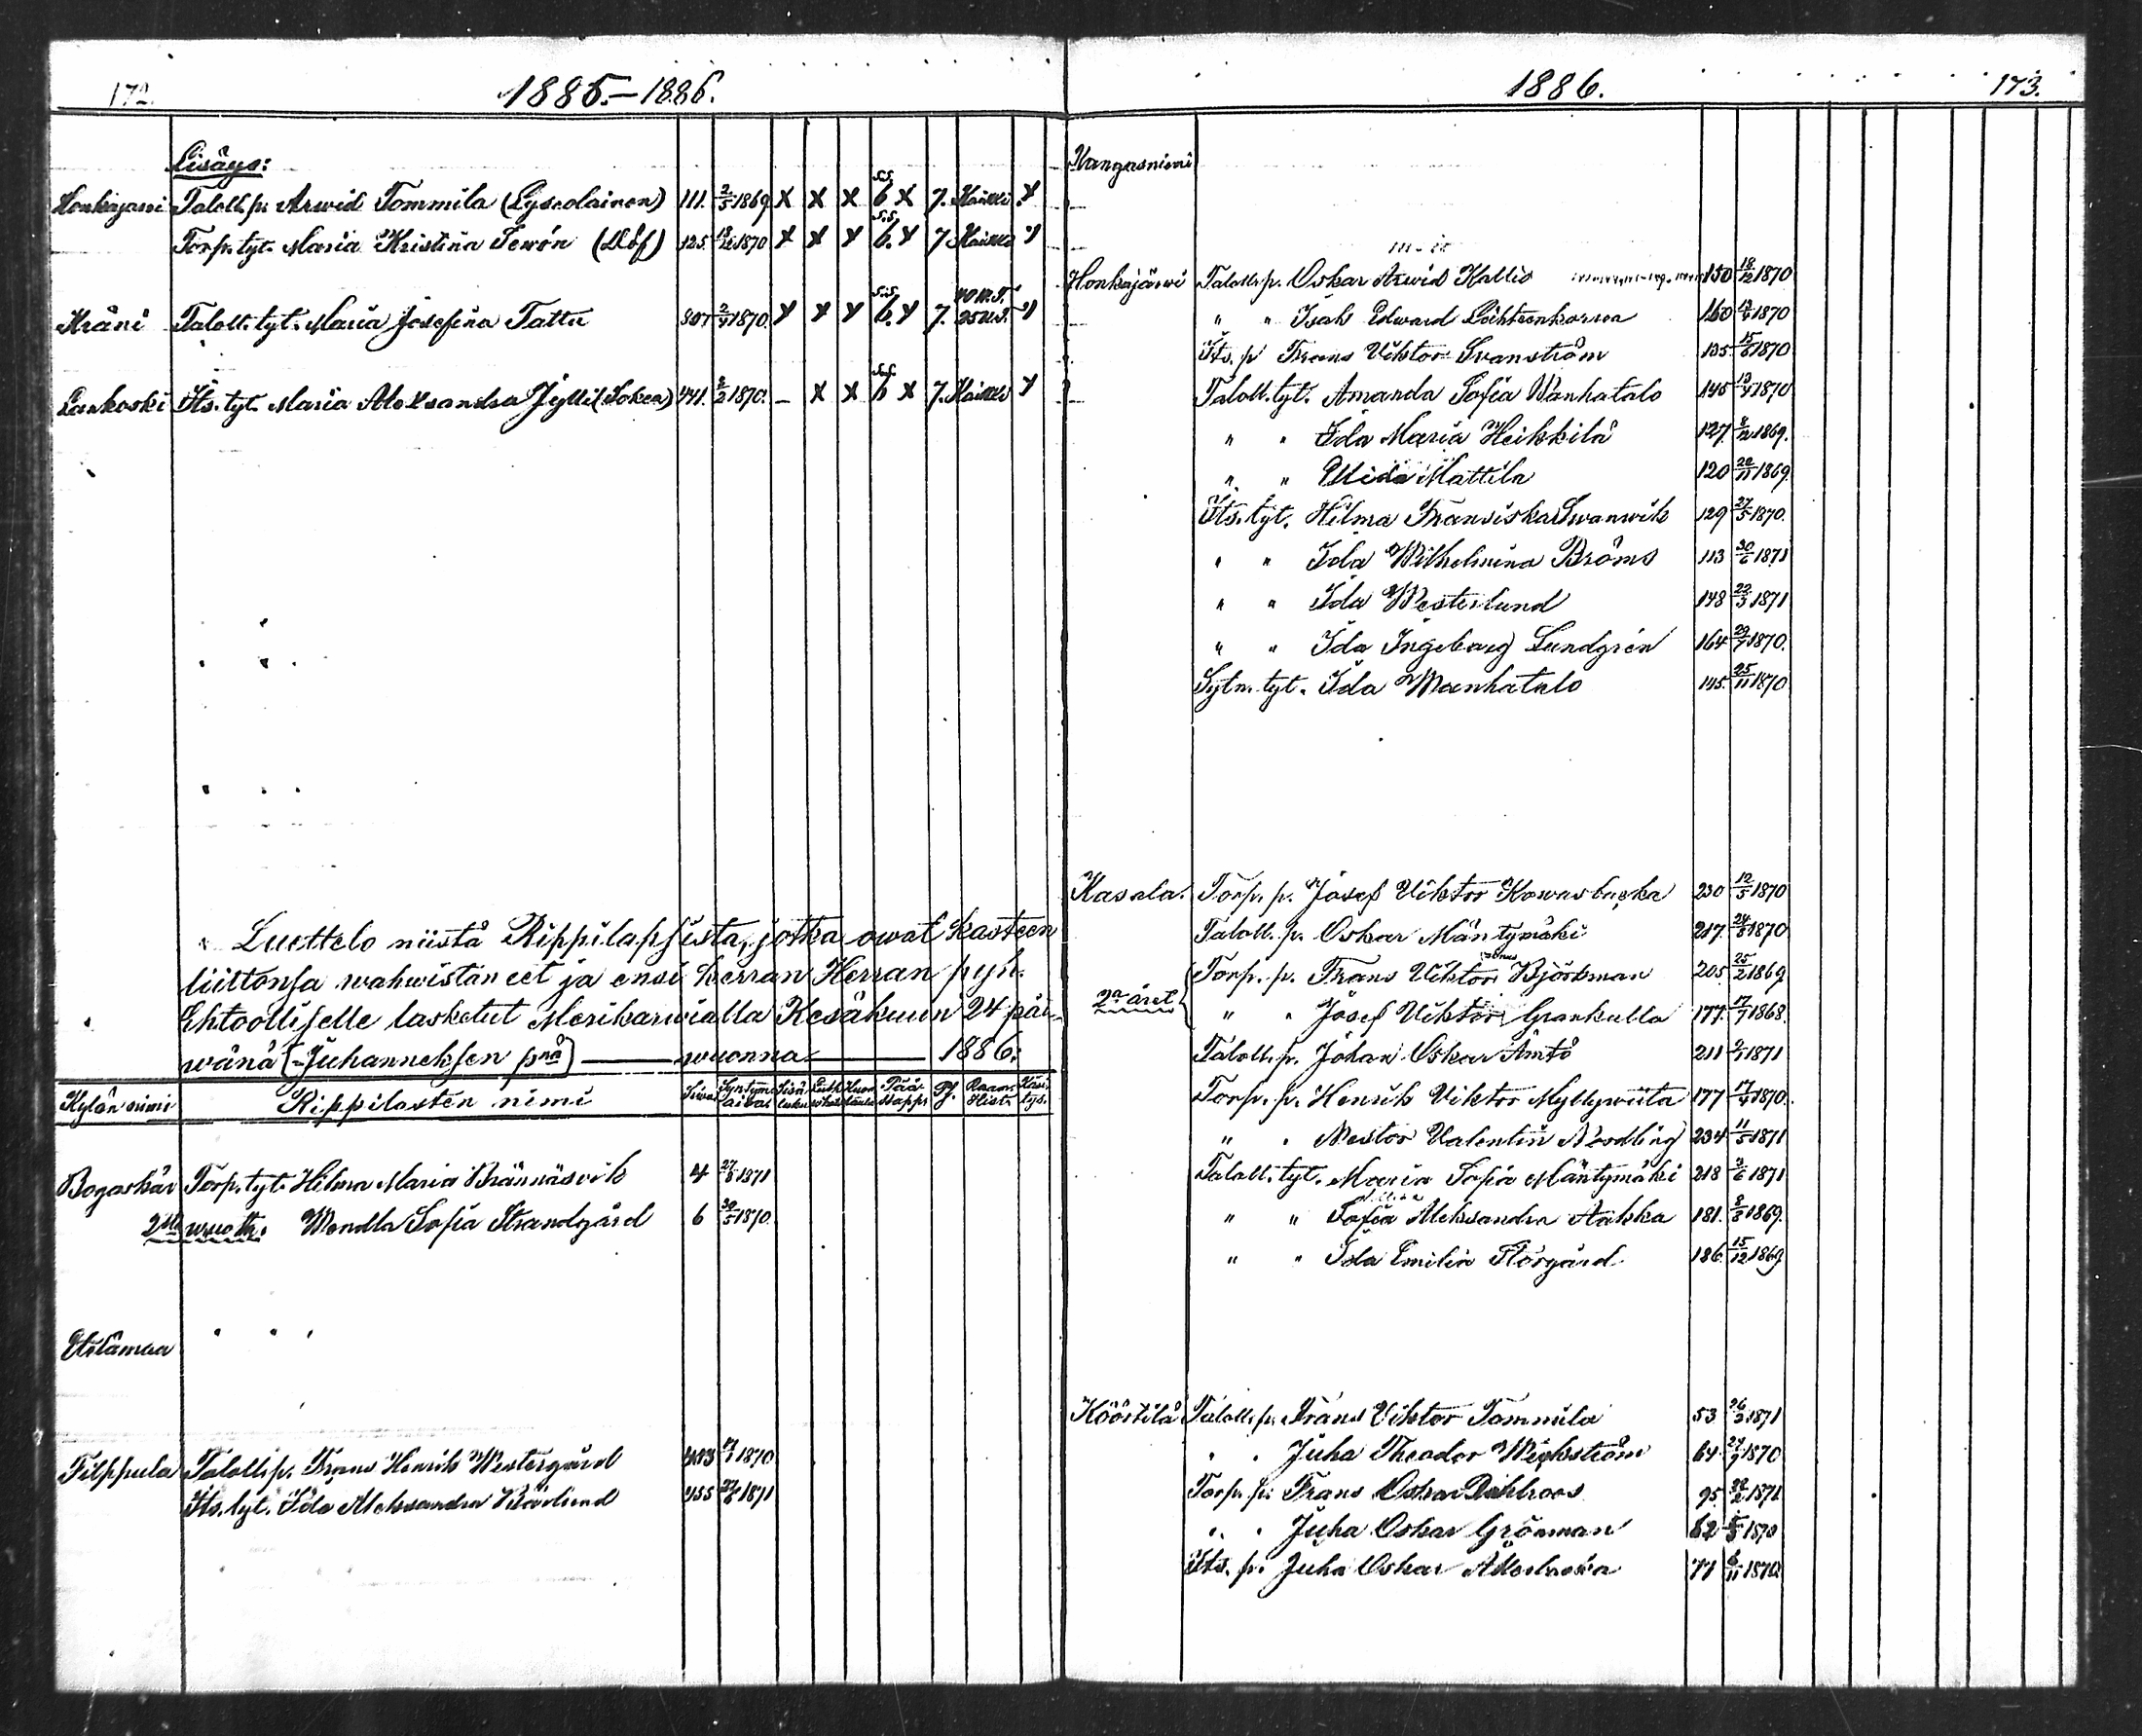 172. 1885.–1886.
Lisäys:
Honkajärvi Taloll. p. Arwid Tommila 111. 2/5 1869 x x x s.s. 6 x 7. Kaikki x
Torp. tyt. Maria Kristina Tewón (Löf) 125. 1870 x x x s.s. 6. x 7 Kaikki
Kräni Taloll. tyt. Maria Josefina Tattu 1870. x x x s.s. 6. x 7.
Lankoski Its. tyt. Maria Aleksandra Jylli (Sokea) 441. 2/2 1870. – x x s.s. 6 x 7. Kaikki x
Luettelo niistä Rippilapsista, jotka owat kasteen
liittonsa wahwistaneet ja ensi kerran Herran pyh.
Ehtoolliselle lasketut Merikarwialla Kesäkuun 24 päi-
wänä (=Juhanneksen pnä) wuonna 1886:
Kylän nimi Rippilasten nimi Siwu Syntymä aika. Sisä luku Pää kapp. Ps. Raam. Hist. Käsi tys.
Bogaskär Torp. tyt. Hilma Maria Brännäsvik 4 27/8 1871
2sta wuotta: Wendla Sofia Strandgård 6 30/5 1870.
Filppula Taloll. p. Frans Henrik Westergård 1870
Its. tyt. Ida Aleksandra Bärlund 455 1871
1886. 173.
Kangasniemi
Honkajärwi Taloll. p. Oskar Arwid Kallio 150 18/12 1870
" " Isak Edward Lähteenkorwa 160 1870
Its. p. Frans Viktor Svanström 135 15/6 1870
Taloll. tyt. Amanda Sofia Wanhatalo 145 1870
" " Ida Maria Heikkilä 127. 1869.
" " Elida Mattila 120 20/11 1869.
Its. tyt. Hilma Fransiska Swanwik 129 27/5 1870.
" " Ida Wilhelmina Broms 113 30/6 1871
" " Ida Westerlund 148 22/3 1871
" " Ida Ingeborg Lundgrén 164 29/7 1870.
Sytn. tyt. Ida Wanhatalo 145. 25/11 1870
Kasala. Torp. p. Josef Viktor Kowasbacka 230 12/5 1870
Taloll. p. Oskar Mäntymäki 217. 24/8 1870
Torp. p. Frans Viktor Björkman 205. 25/2 1869.
2a året " " Josef Viktor Grankulla 177. 17/7 1868.
Taloll. p. Johan Oskar Åmtö 211 1871
Torp. p. Henrik Viktor Myllywiita 177 17/4 1870.
" " Nestor Valentin Nordling 234 11/5 1871
Taloll. tyt. Maria Sofia Mäntymäki 218 1871
" " Sofia Aleksandra Aakka 181. 8/8 1869.
" " Ida Emilia Storgård 186. 15/12 1869
Köörtilä Taloll. p. Frans Viktor Tommila 53 1871
" " Juha Theodor Wickström 64 1870
Torp. p. Frans Oskar Dahlroos 95. 1871.
" " Juha Oskar Grönman 62 1870
Its. p. Juha Oskar 77 1870